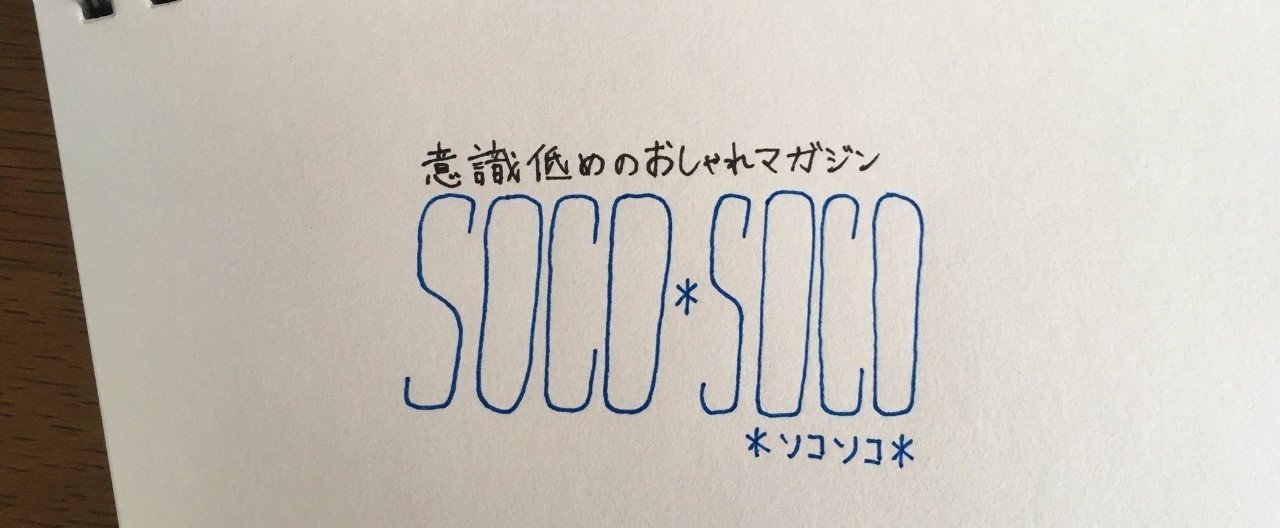 意識低めのおしゃれマガジン
SOCO*SOCO
*ソコソコ*